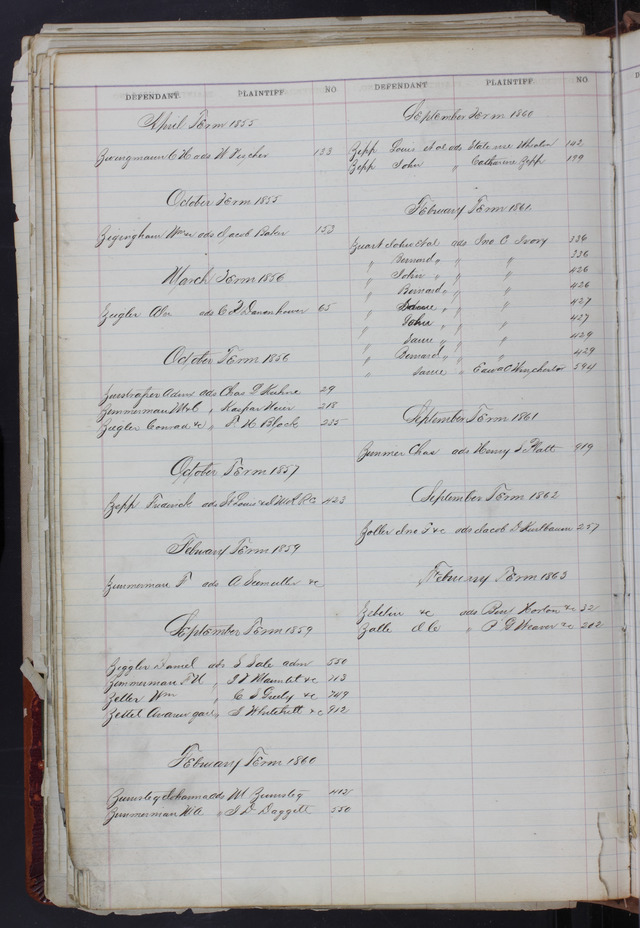 DEFENDANT. PLAINTIFF NO
April Term 1855
Zwingmann C H ads W Fischer 133
October Term 1855
Zigingham Wm ads Jacob Baker 153
March Term 1856
Zeigler ads C F Danenhower 65
October Term 1856
Adm ads Chas D Kuhne 29
Zimmerman " Kaspar 218
Zeigler Conrad &c " H Block 235
October Term 1857
Zepp Frederick ads St Louis 423
February Term 1859
Zimmerman ads &c
September Term 1859
Ziggler Daniel ads S Sale adm 550
Zimmerman F H " &c 713
Zeller Wm " C S Greely &c 749
Zettel " S Whitehill &c 912
February Term 1860
Johanna ads M 412
Zimmerman " D Daggett 550
DEFENDANT PLAINTIFF NO
September Term 1860
Zepp Louis et al ads State use 142
Zepp John " Catharine Zepp 199
February Term 1861
John et al ads Jno C Ivory 336
" Bernard " " " 336
" John " " " 426
" Bernard " " " 426
" Same " " 427
" John " " 427
" Same " " 429
" Bernard " " " 429
" Same " 594
September Term 1861
Zimmer Chas ads Henry 919
September Term 1862
Zoller Jno F &c ads Jacob D Hurlbaum 257
February Term 1863
&c ads Horton &c 32
" P G Weaver &c 202